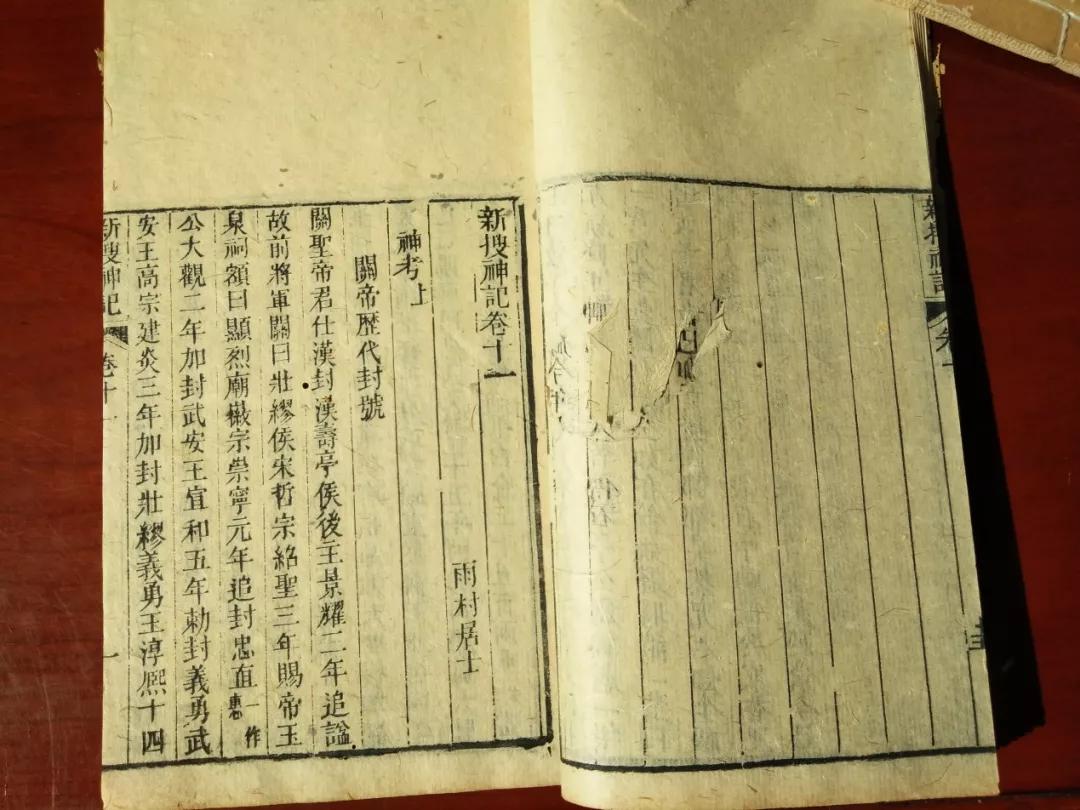 新搜神記卷十一
雨村居士
神考上
關帝歷代封號
關聖帝君仕漢封漢壽亭侯後主景耀二年追諡
故前將軍關曰壯繆侯宋哲宗紹聖三年賜帝玉
泉祠額曰顯烈廟徽宗崇寧元年追封忠直一作惠
公大觀二年加封武安王宣和五年勑封義勇武
安王高宗建炎三年加封壯繆義勇王淳熙十四
新搜神記 卷十一 一